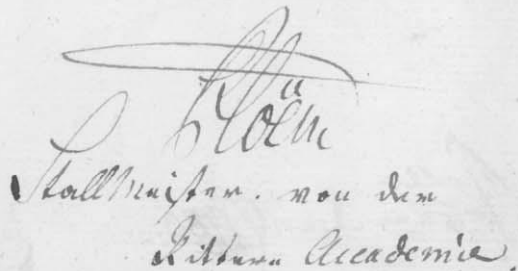 Stallmeister. von der
Ritter Accademie